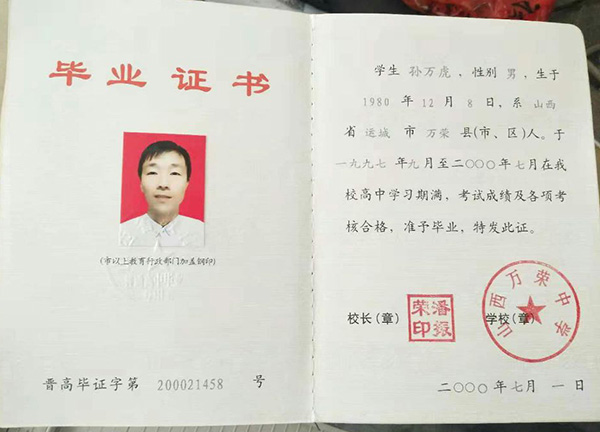 毕业证书
(市以上教育行政部门加盖钢印)
晋高毕证字第 200021458 号
学生 孙万虎 ，性别 男 ，生于
1980 年 12 月 8 日、系 山西
省 运城 市 万荣 县(市、区)人。于
一九九七 年九 月至二〇〇〇 年 七月在我
校高中学习期满，考试成绩及各项考
核合格，准予毕业，特发此证。
校长(章)
荣潘
印振
学校(章)
山西万荣中学
二〇〇〇 年七月 一 日